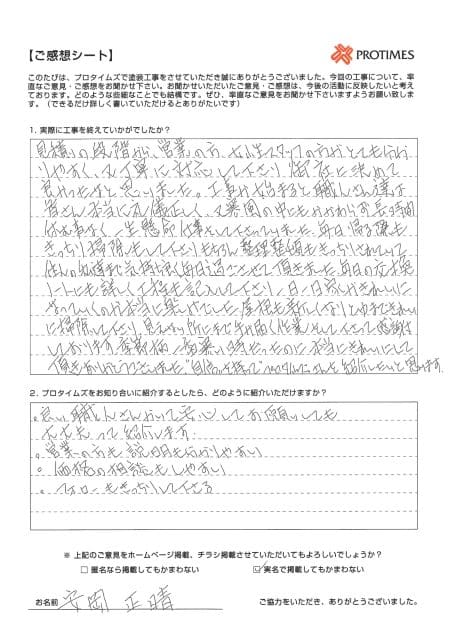 【ご感想シート】
PROTIMES
このたびは、プロタイムズで塗装工事をさせていただき誠にありがとうございました。今回の工事について、率
直なご意見・ご感想をお聞かせ下さい。お聞かせいただいたご意見・ご感想は、今後の活動に反映したいと考え
ております。どのような些細なことでも結構です。ぜひ、率直なご意見をお聞かせ下さいますようお願い致しま
す。（できるだけ詳しく書いていただけるとありがたいです）
1. 実際に工事を終えていかがでしたか？
見積りの段階から、営業の方、女性スタッフの方がとても分か
りやすく、又丁寧に対応して下さり 御社に決めて
良かったなと思いました。工事が始まると職人さん達は
皆さん本当に礼儀正しく、又暑い中にもかかわらず長時間
休む事なく一生懸命仕事をして下さっていました。毎日帰る際も
きっちり掃除もして下さりもちろん整理整頓もきっちりされていて
住人の私達も気持ち良く毎日過ごさせて頂きました。毎日の交換
ノートにも詳しく工程も記入して下さり一日一日家がきれいに
なっていくのが本当に楽しみでした。屋根も新しくなりとゆもきれい
に掃除して下さり、見えない所にまで手が届く作業をして下さって感謝
しております。
本当にきれいにして
頂きありがとうございました。
紹介したいと思います。
2. プロタイムズをお知り合いに紹介するとしたら、どのように紹介いただけますか？
。良い職人さんがいて安心してお願いしても
大丈夫って紹介します。
。営業の方も説明も分かりやすい
。価格の相談もしやすい
。フォローもきっちりして下さる
※ 上記のご意見をホームページ掲載、チラシ掲載させていただいてもよろしいでしょうか？
□ 匿名なら掲載してもかまわない
☑ 実名で掲載してもかまわない
お名前 安岡 正晴
ご協力をいただき、ありがとうございました。